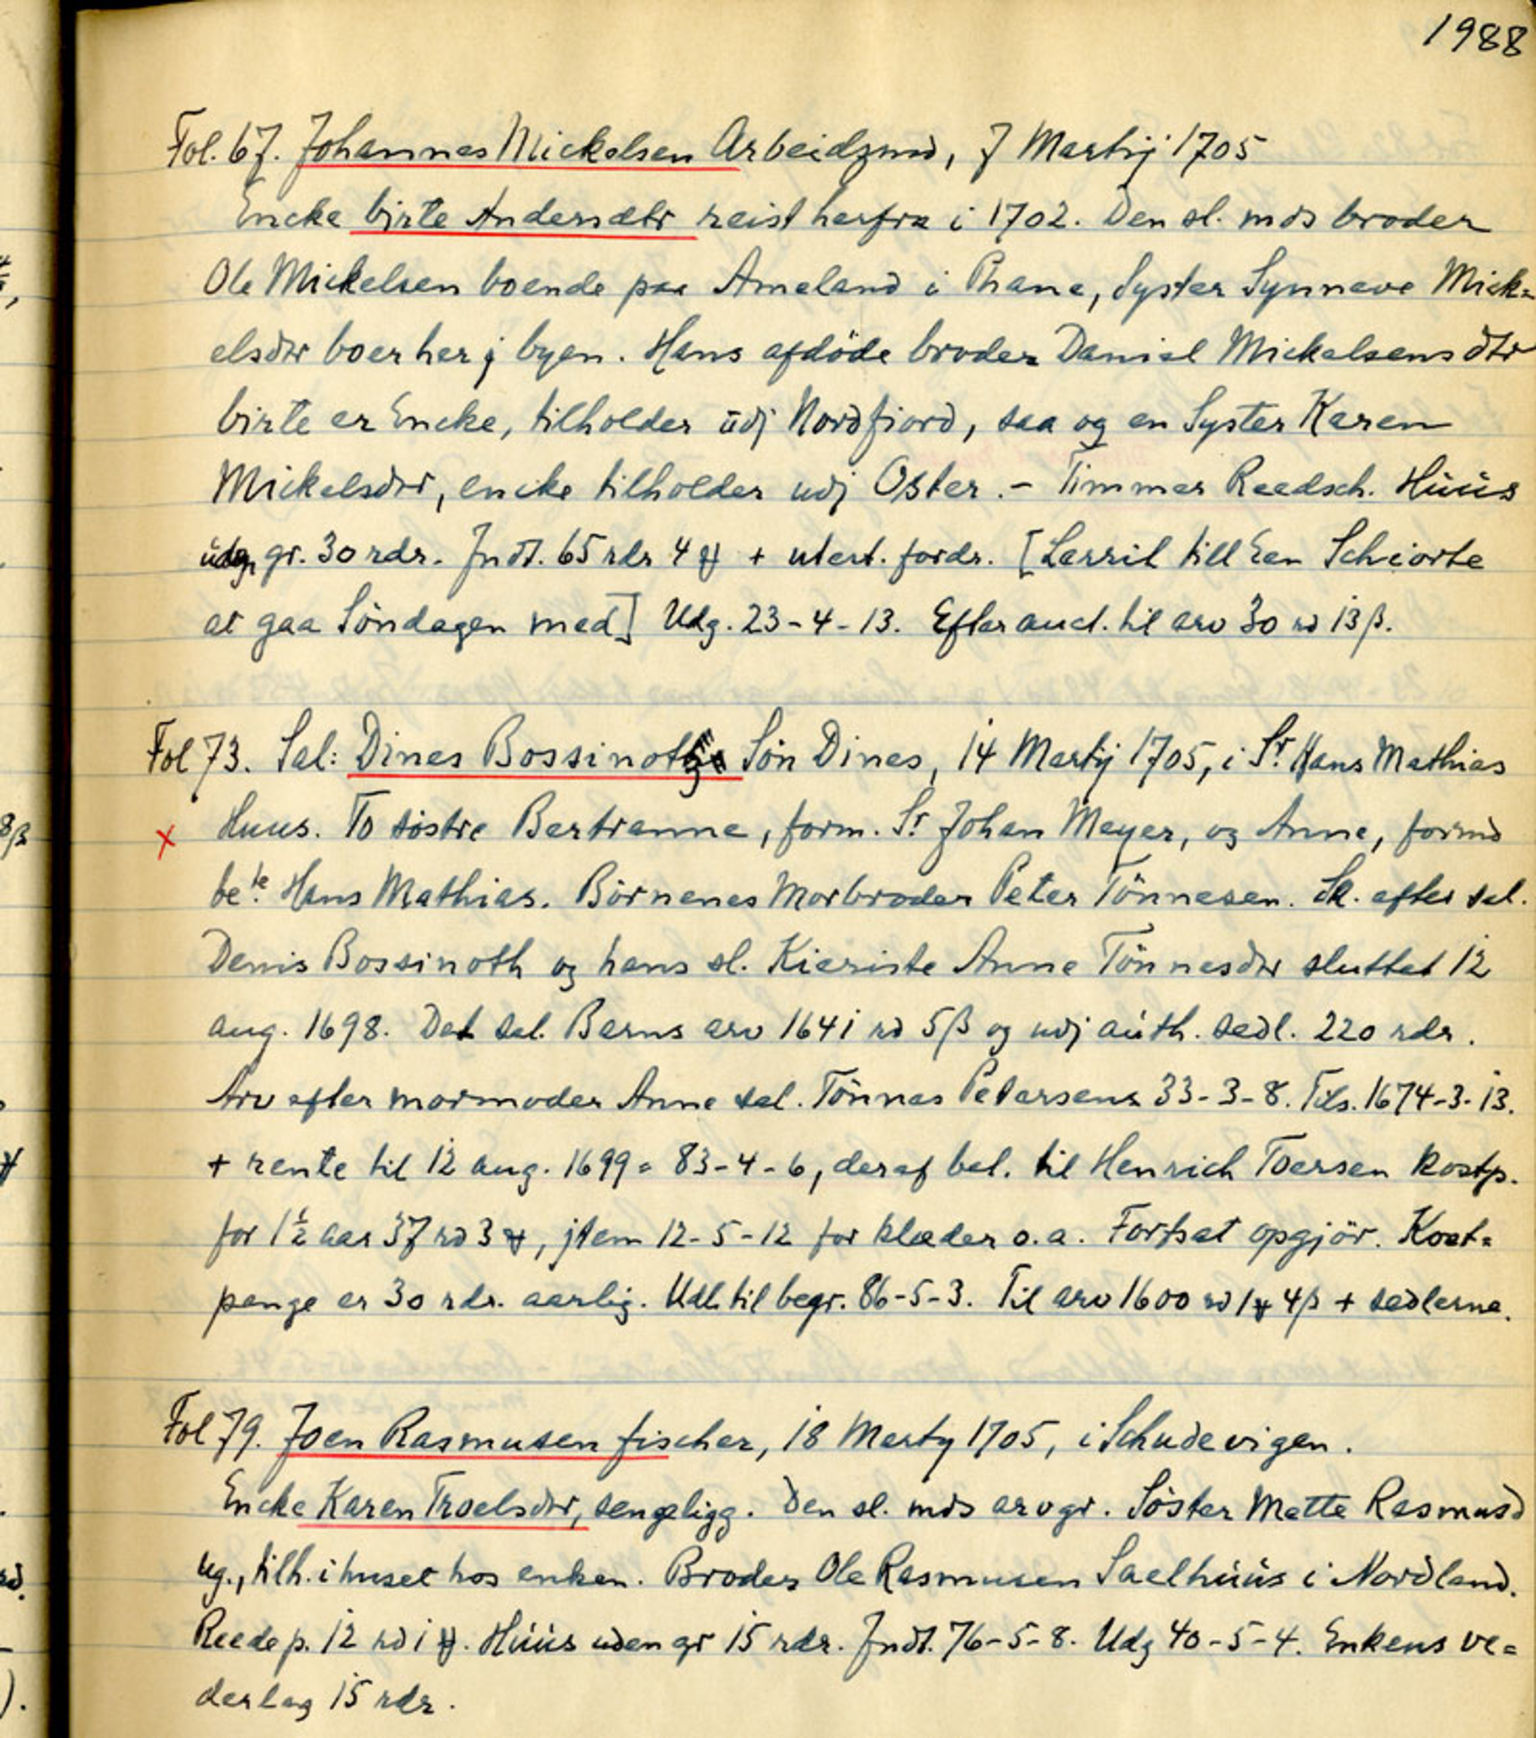 1988
Fol. 67. Johannes Mickelsen Arbeidzmd, 7 Martij 1705
Encke birte Andersdtr reist herfra i 1702. Den sl. mds broder
Ole Mickelsen boende paa Ameland i Phane, Syster Synneve Mick=
elsdtr boer her j byen. Hans afdöde broder Daniel Mickelsens dtr
birte er Encke, tilholder udj Nordfiord, saa og en Syster Karen
Mickelsdtr, encke tilholder udj Oster. - Timmer Reedsch. Húús
gr. 30 rdr. Jndt. 65 rdr 4 ꝟ + utert. fordr. [Lerril till Een Schiorte
at gaa Söndagen med] Udg. 23-4-13. Efter auct. til arv 30 rd 13 β.
Fol 73. Sal: Dines Bossinoths Sön Dines, 14 Martij 1705, i Sr Hans Mathias
x Huus. To söstre Bertranne, form. Sr Johan Meyer, og Anne, formd
bete. Hans Mathias. Börnenes Morbroder Peter Tönnesen. Sk. efter sal.
Denis Bossinoth og hans sl. Kieriste Anne Tönnesdtr sluttet 12
aug. 1698. Det sal. Barns arv 1641 rd 5β og udj aúth. sedl. 220 rdr.
Arv efter mormoder Anne sal. Tönnes Petersens 33-3-8. Tils. 1674-3-13.
+ rente til 12 aug. 1699 = 83-4-6, deraf bet. til Henrich Toersen kostp.
for 1½ aar 37 rd 3 ꝟ, jtem 12-5-12 for klæder o.a. Fortsat opgjör. Kost=
penge er 30 rdr. aarlig. Udl. til begr. 86-5-3. Til arv 1600 rd 1 ꝟ 4β + sedlerne.
Fol 79. Joen Rasmusen fischer, 18 Marty 1705, i Schudevigen.
Encke Karen Troelsdtr, sengeligg. Den sl. mds arvgr. Söster Mette Rasmusd
ug., tilh. i huset hos enken. Broder Ole Rasmusen Saelhúús i Nordland.
Reedep. 12 rd 1 ꝟ. Húús uden gr 15 rdr. Jndt. 76-5-8. Udg 40-5-4. Enkens ve=
derlag 15 rdr.